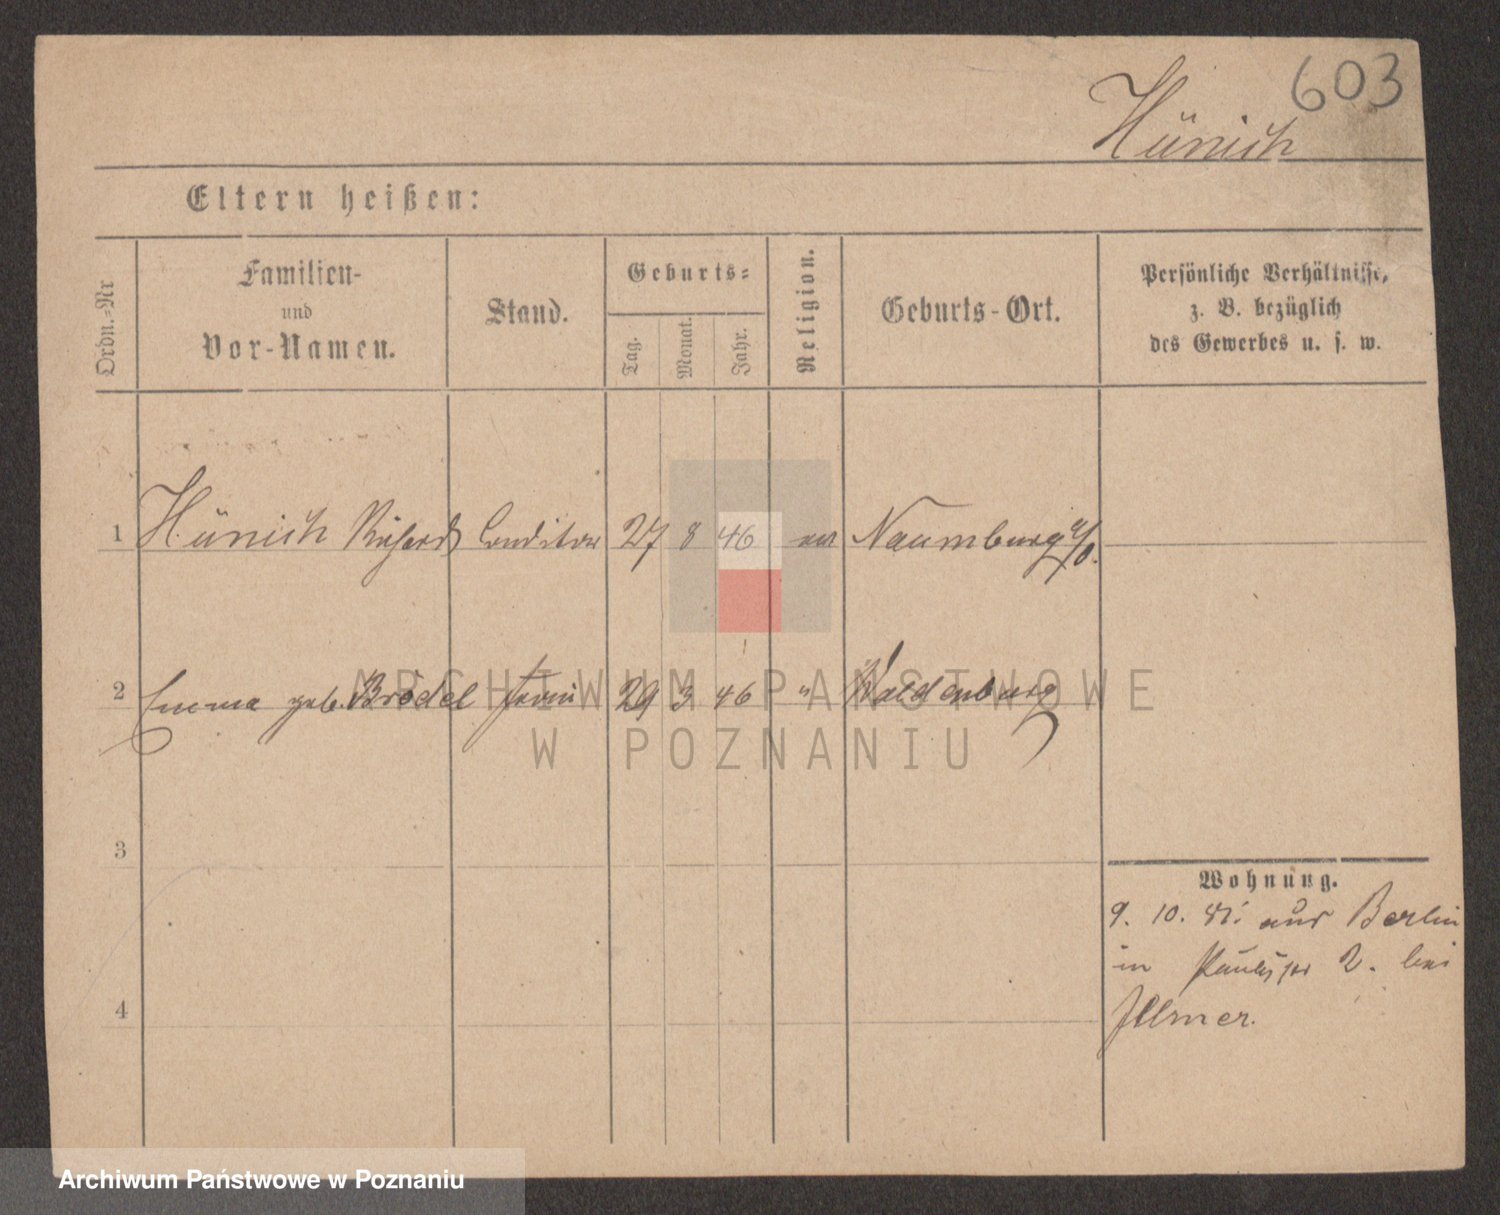 603
Hünich
Eltern heißen:
Ordn.=Nr
Familien-
und
Vor-Namen.
Stand.
Geburts=
Tag.
Monat.
Jahr.
Religion.
Geburts-Ort.
Persönliche Verhältnisse,
z. B. bezüglich
des Gewerbes u. s. w.
1 Hünich Richard Conditor 27 8 46 ev Naumburg a/S.
2 Emma geb. Brödel Frau 29 3 46 " Waldenburg
3
4
Wohnung.
9. 10. 81. aus Berlin
in 2. bei
Illmer.
ARCHIWUM PAŃSTWOWE
W POZNANIU
Archiwum Państwowe w Poznaniu